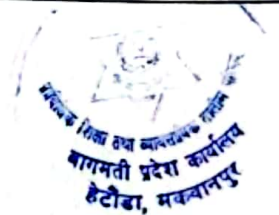 प्राविधिक शिक्षा तथा व्यावसायिक तालीम परिषद्
बागमती प्रदेश कार्यालय
हेटौंडा, मकवानपुर